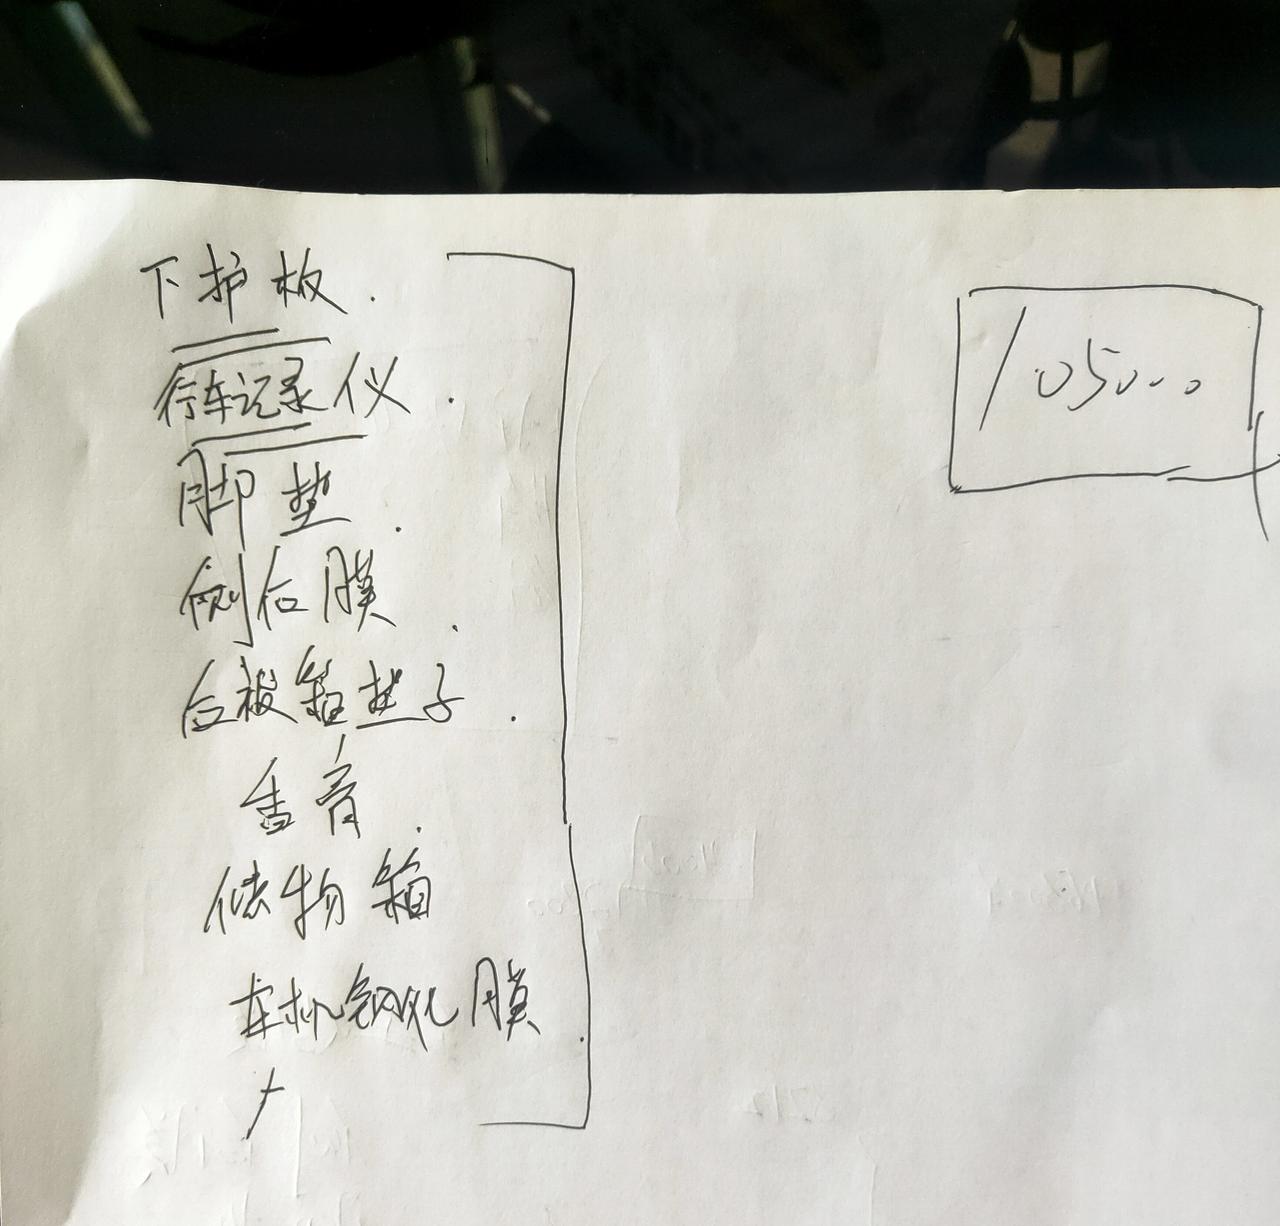 下护板.
行车记录仪.
脚垫.
侧后膜.
后备箱垫子.
香膏.
储物箱
车机钢化膜.
105000